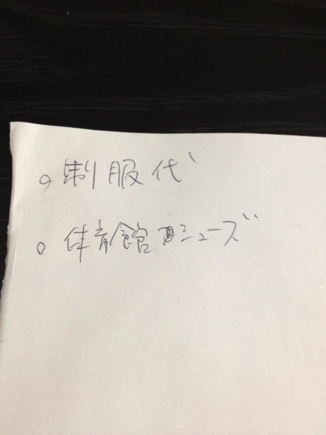 ○ 制服代
○ 体育館シューズ